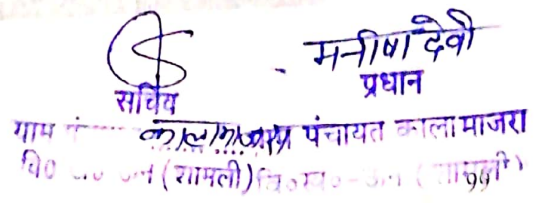 मनीषा देवी
सचिव प्रधान
ग्राम कालामाजरा पंचायत काला माजरा
वि० (शामली) वि०ख०-ऊन (शामली)